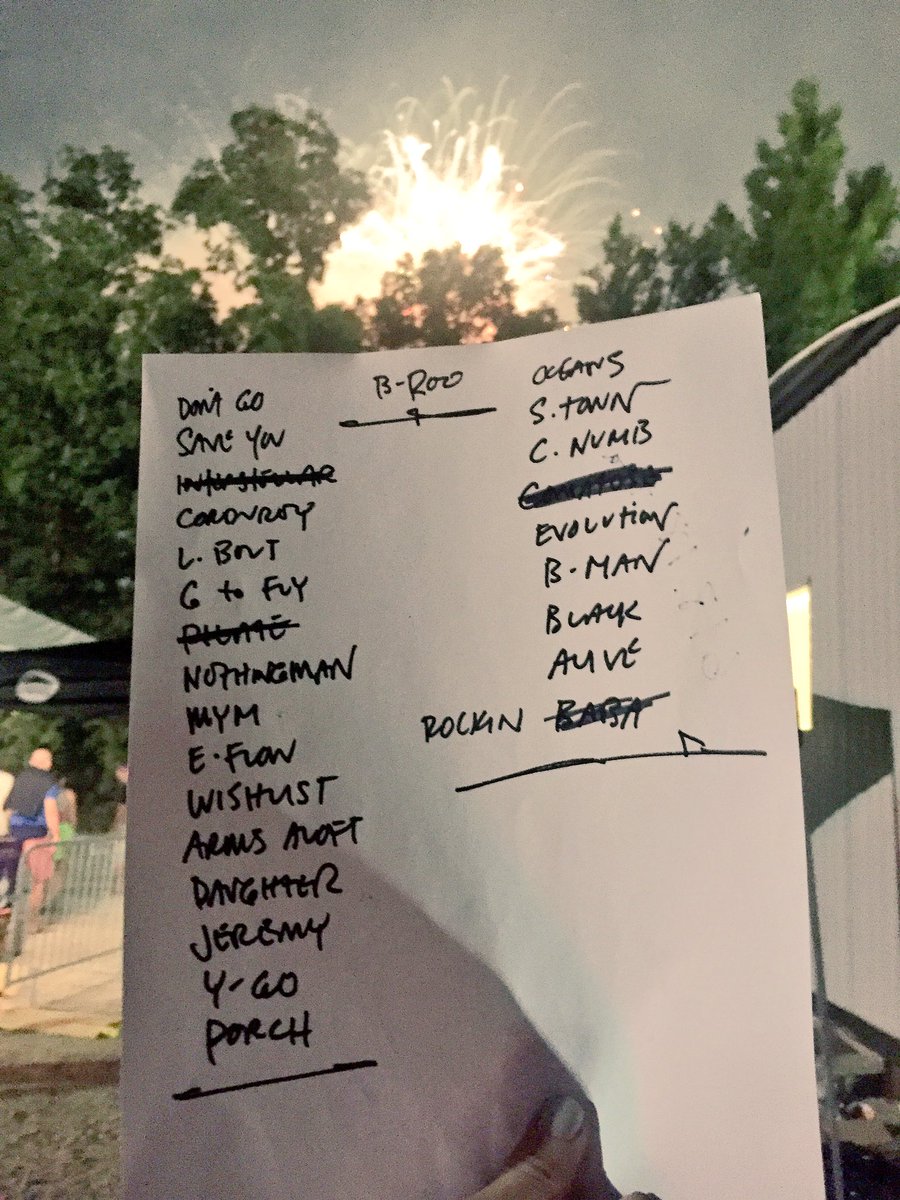 B-ROO
DON'T GO
SAVE YOU
CORDUROY
L. BOLT
G to FLY
PILATE
NOTHINGMAN
MYM
E. FLOW
WISHLIST
ARMS ALOFT
DAUGHTER
JEREMY
Y-GO
PORCH
OCEANS
S. TOWN
C. NUMB
EVOLUTION
B. MAN
BLACK
ALIVE
ROCKIN BABA